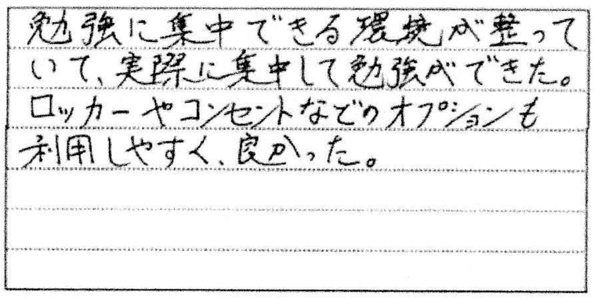 勉強に集中できる環境が整って
いて、実際に集中して勉強ができた。
ロッカーやコンセントなどのオプションも
利用しやすく、良かった。